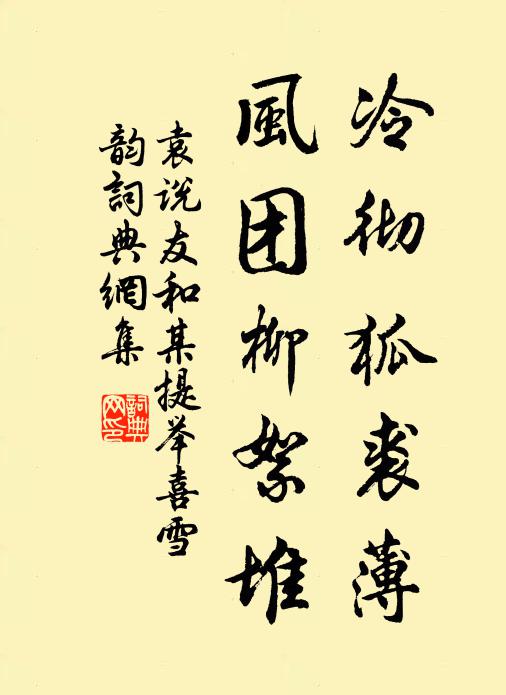 冷彻狐裘薄
風团柳絮堆
袁说友和某提举喜雪
韵詞典網集
詞典网印